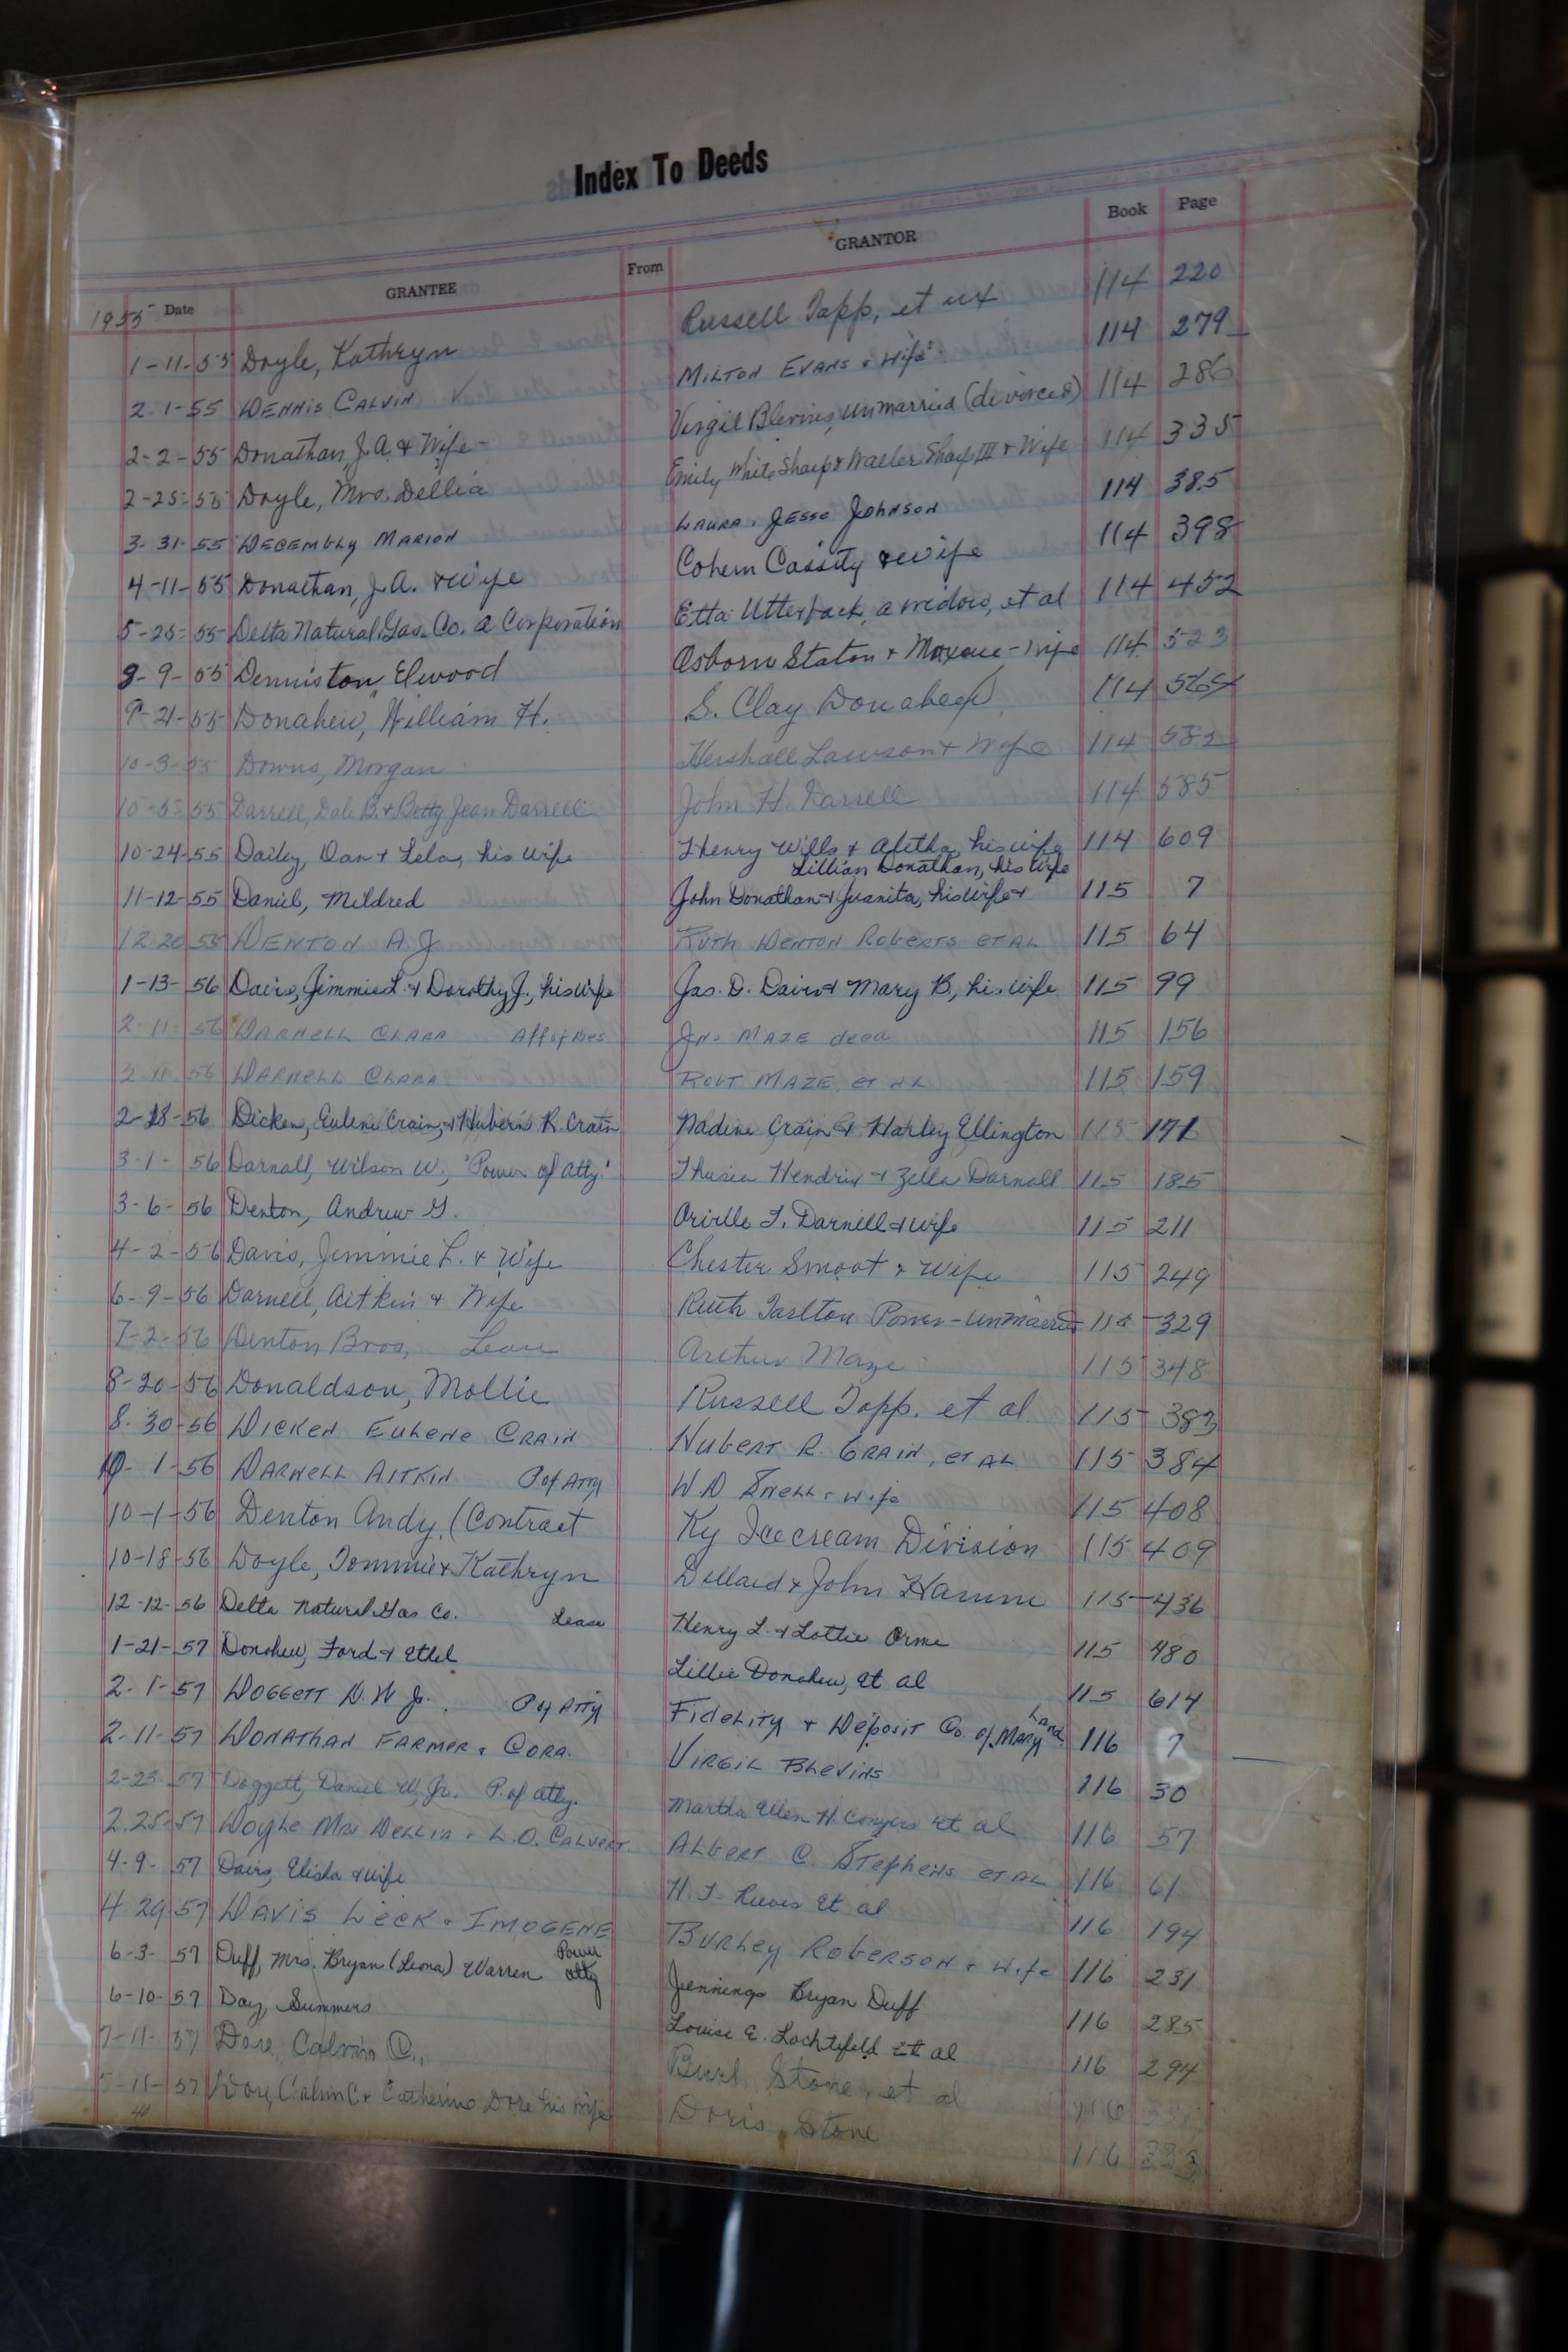 Index To Deeds
Date GRANTEE From GRANTOR Book Page
1955
1-11-55 Doyle, Kathryn Russell Tapp, et ux 114 220
2-1-55 DENNIS CALVIN MILTON EVANS & Wife 114 279
2-2-55 Donathan, J.A. & Wife Virgil Blevins, unmarried (divorced) 114 286
2-25-55 Doyle, Mrs. Dellia Emily White Sharp & Waller Sharp III & Wife 114 335
3-31-55 MARION LAURA & JESSE JOHNSON 114 385
4-11-55 Donathan, J.A. & Wife Cohem Cassity & wife 114 398
5-25-55 Delta Natural Gas Co. a Corporation Etta Utterback, a widow, et al 114 452
8-9-55 Denniston, Elwood Osborn Staton & Maxine - wife 114 523
9-21-55 Donahew, William H. S. Clay Donahew 114 564
10-3-55 Downs, Morgan Hershall Lawson & Wife 114 582
10-5-55 Darrell, Dale B. & Betty Jean Darrell John H. Darrell 114 585
10-24-55 Dailey, Dan & Lela, his wife Henry Wills & Aletha, his wife 114 609
Lillian Donathan, his wife
11-12-55 Daniel, Mildred John Donathan & Juanita, his wife & 115 7
12-20-55 DENTON A.J RUTH DENTON ROBERTS ET AL 115 64
1-13-56 Davis, Jimmie L. & Dorothy J., his wife Jas. D. Davis & Mary B, his wife 115 99
2-11-56 DARNELL CLARA Aff of Des JNo MAZE decd 115 156
2-11-56 DARNELL CLARA ROBT MAZE ET UX 115 159
2-18-56 Dicken, Eulene Crain, & Hubern R. Crain Nadine Crain & Harley Ellington 115 171
3-1-56 Darnall, Wilson W., "Power of Atty." Thusia Hendrix & Zella Darnall 115 185
3-6-56 Denton, Andrew G. Orville T. Darnell & wife 115 211
4-2-56 Davis, Jimmie L. & Wife Chester Smoot & Wife 115 249
6-9-56 Darnell, Aitkin & Wife Ruth Tarlton Power - unmarried 115 329
7-2-56 Denton Bros, Lease Arthur Maze 115 348
8-20-56 Donaldson, Mollie Russell Tapp, et al 115 383
8-30-56 DICKEN EULENE CRAIN HUBERT R. CRAIN, ET AL 115 384
10-1-56 DARNELL AITKIN P of ATTY W.D SNELL & wife 115 408
10-1-56 Denton Andy, (Contract Ky Ice cream Division 115 409
10-18-56 Doyle, Tommie & Kathryn Dillard & John Hamm 115 436
12-12-56 Delta Natural Gas Co. Lease Henry L. & Lottie Orme 115 480
1-21-57 Donohew, Ford & Ethel Lillie Donohew, et al 115 614
2-1-57 DOGGETT D.W Jr. P of ATTY FIDELITY & DEPOSIT Co. of MARY Land 116 7
2-11-57 DONATHAN FARMER & CORA. VIRGIL BLEVINS 116 30
2-23-57 Doggett, Daniel W, Jr. P. of atty. Martha Ellen H. Conyers et al 116 57
2-25-57 DOYLE MRS DELLIA & L.O. CALVERT ALBERT C. STEPHENS ET AL 116 61
4-9-57 Davis, Elisha & wife H.T. Reeves et al 116 194
4-29-57 DAVIS LECK & IMOGENE BURLEY ROBERSON & Wife 116 231
6-3-57 Duff, Mrs. Bryan (Leona) Warren Power atty Jennings Bryan Duff 116 285
6-10-57 Day, Summers Louise E. Lochtefeld et al 116 294
7-11-57 Dore, Calvin C., Burl Stone, et al 116
-11-57 Dore, Calvin C & Catherine Dore his wife Doris Stone 116